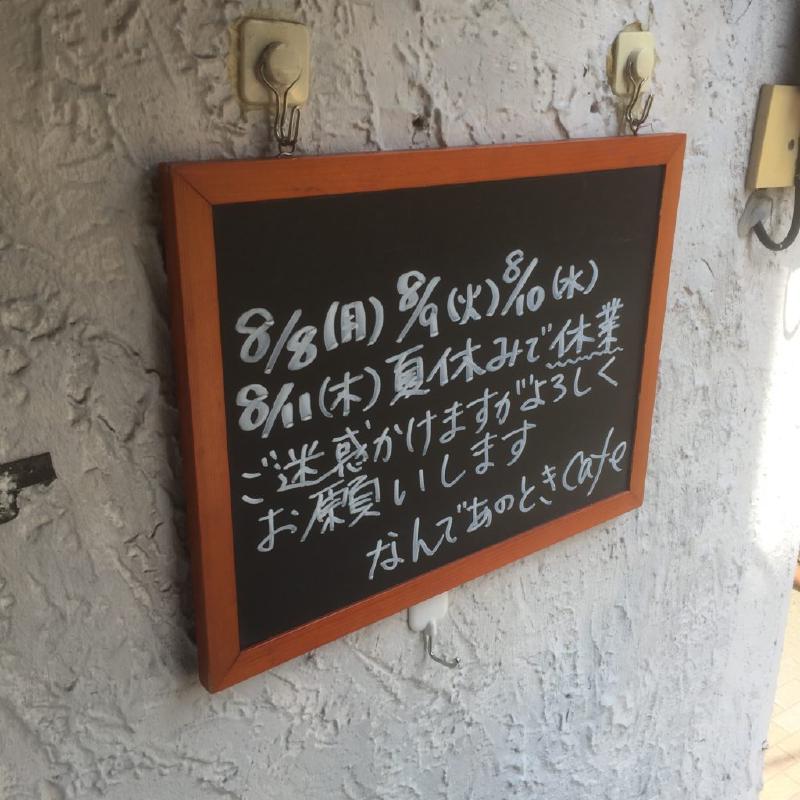 8/8(月) 8/9(火) 8/10(水)
8/11(木)夏休みで休業
ご迷惑かけますがよろしく
お願いします
なんであのときcafe